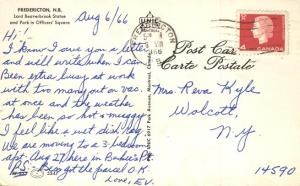 FREDERICTON, N.B.
Lord Beaverbrook Statue
and Park in Officers' Square
Aug 6/66
Hi:-!
I know I owe you a letter
and will write when I can.
Been extra busy at work
with too many out on vac.
at once and the weather
has been so hot & muggy
I feel like a wet dish rag.
We are moving to a 3-bedroom
apt. Aug 27/here in
P.S.- Bea got the parcel O.K.
Love, Ev.
UNIC
FREDERICTON
VIII
1966
N B
CANADA
4
Post Card
Carte Postale
Mrs. Rova Kyle
Wolcott,
N.Y.
14590